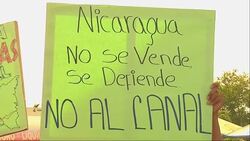 Nicaragua
No se Vende
Se Defiende
NO AL CANAL